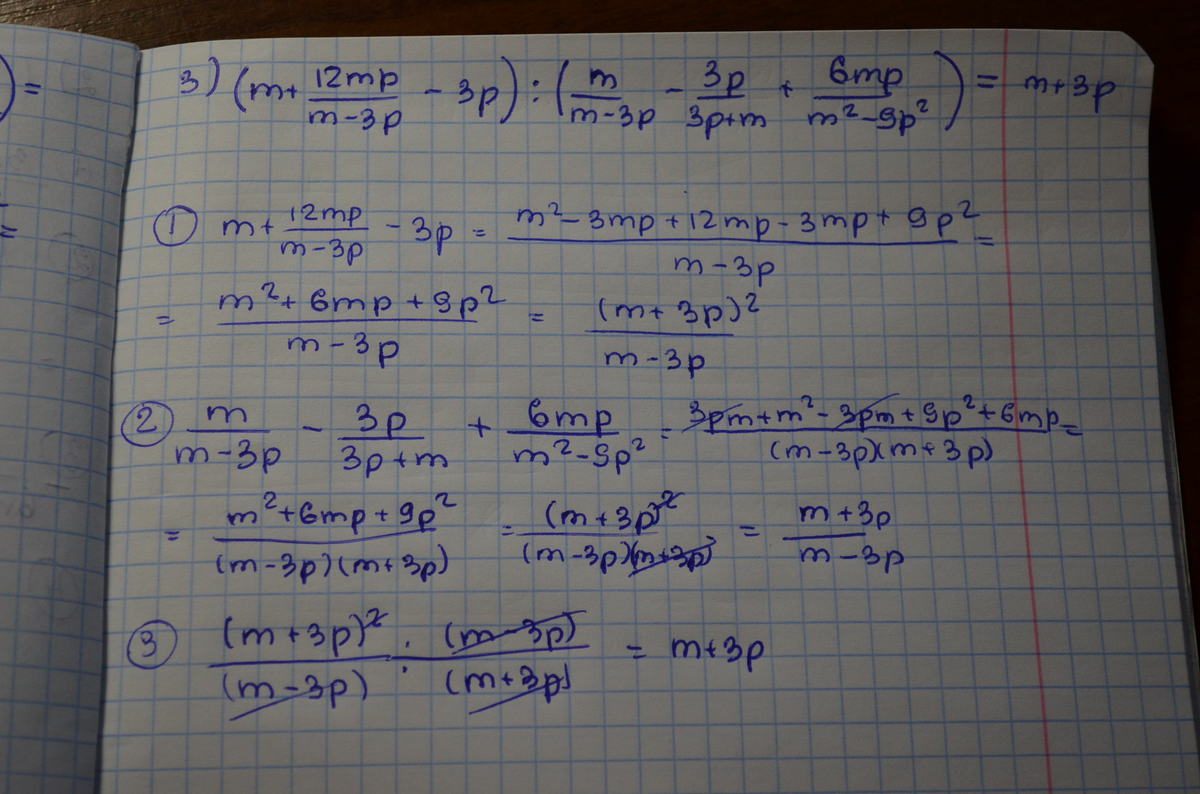 ) =
=
3) (m + 12mp/(m-3p) - 3p) : (m/(m-3p) - 3p/(3p+m) + 6mp/(m²-9p²)) = m+3p
① m + 12mp/(m-3p) - 3p = (m² - 3mp + 12mp - 3mp + 9p²)/(m-3p) =
= (m² + 6mp + 9p²)/(m-3p) = (m+3p)²/(m-3p)
② m/(m-3p) - 3p/(3p+m) + 6mp/(m²-9p²) = (3pm + m² - 3pm + 9p² + 6mp)/((m-3p)(m+3p)) =
= (m² + 6mp + 9p²)/((m-3p)(m+3p)) = (m+3p)²/((m-3p)(m+3p)) = (m+3p)/(m-3p)
③ (m+3p)²/(m-3p) : (m-3p)/(m+3p) = m+3p